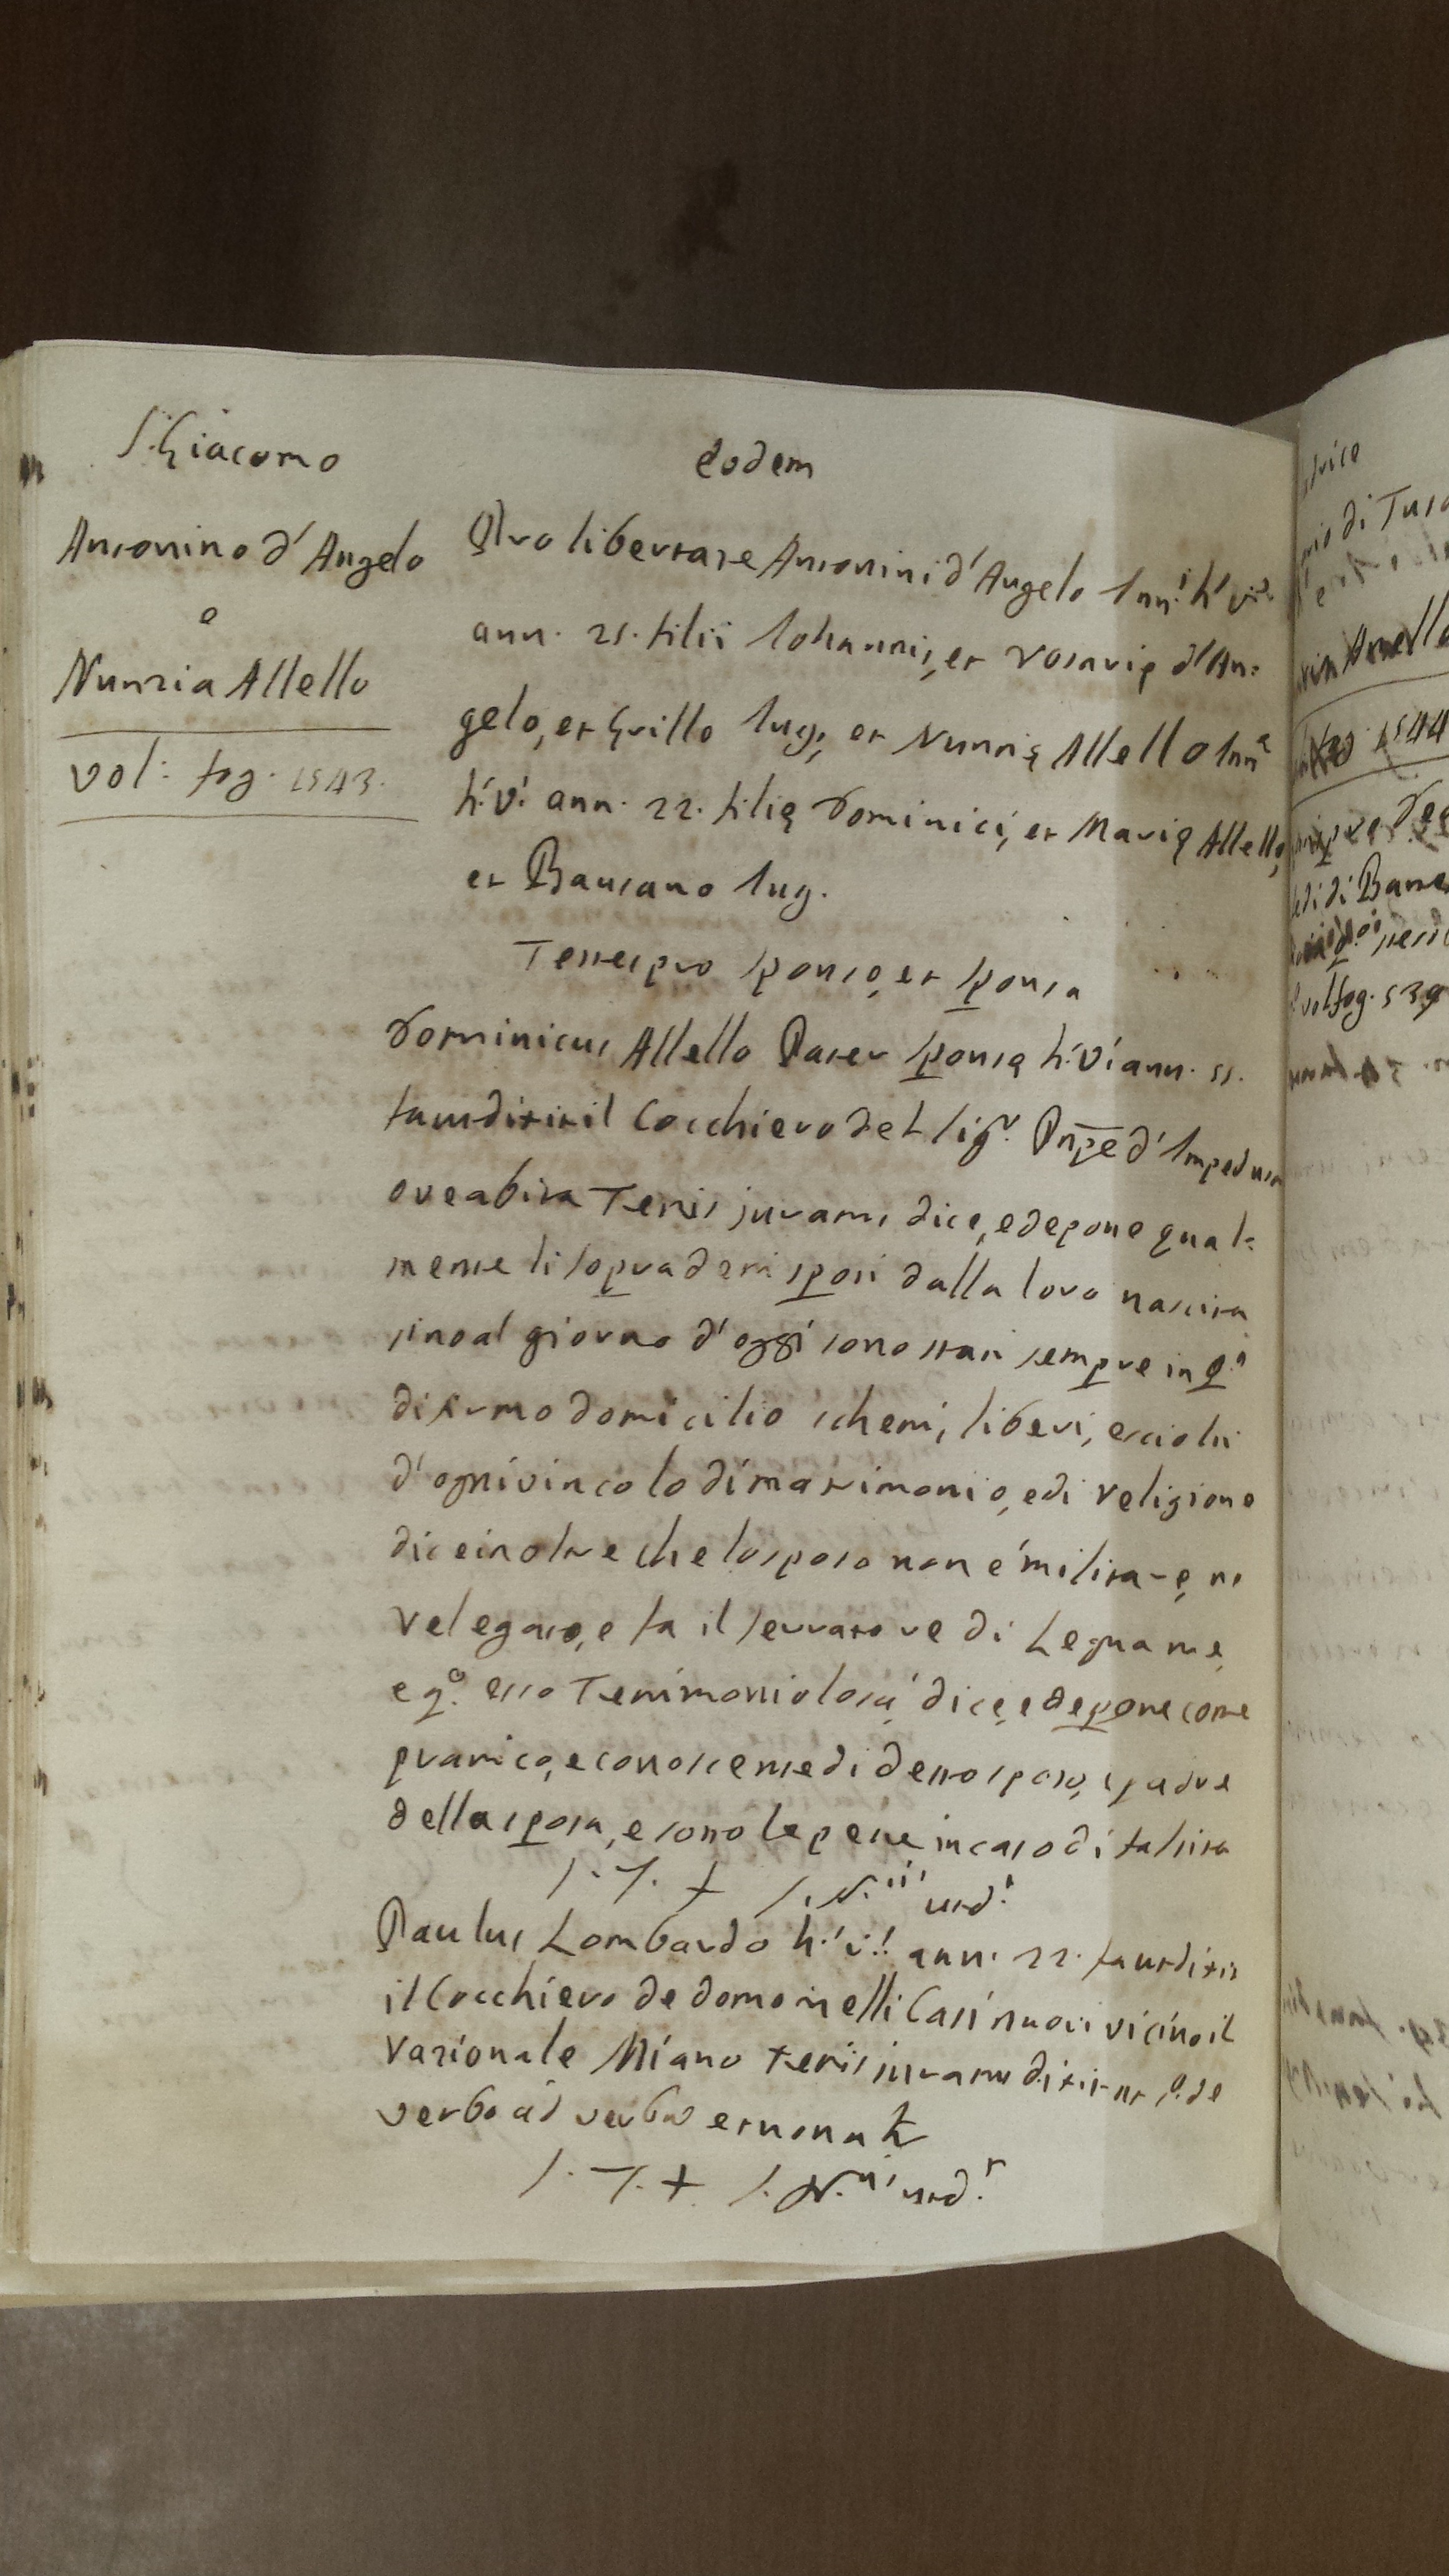 S. Giacomo
eodem
Antonino d'Angelo
e
Nunzia Allello
vol: fog. 1543.
Pro libertate Antonini d'Angelo Inn.i h.' v.'
ann. 25. filii Iohannis, et rosarię d'An:
gelo, et Grillo Iug; et Nunzię Allello Inn.e
h.' v.' ann. 22. filię Dominici, et Marię Allello,
et Bausano Iug.
Testes pro sponso, et sponsa
Dominicus Allello Pater sponsę h.' v.' ann. 55.
fam dixit il Cocchiero del Sig.r Pnpe d'
ove abita Testis juram, dice, e depone qual:
mente li sopradetti sposi dalla loro nascita
sino al giorno d'oggi sono stati sempre in q.a
di fermo domicilio schetti, liberi, e sciolti
d'ogni vincolo di matrimonio, e di religione
dice inoltre che lo sposo non é militare, ne
relegato, e fa il serratore di Legname,
e q.o esso Testimonio lo sa, dice, e depone come
prattico, e conoscente di detto sposo, e padre
della sposa, e sotto le pene in caso di falsita
S. T. + S. N.
Paulus Lombardo h.' v.' ann. 22. fam dixit
il Cocchiero de domo nelli Casi nuovi vicino il
Razionale Miano testis juram dixit ut s.a de
verbo ad verbum et non aliter
S. T. + S. N.